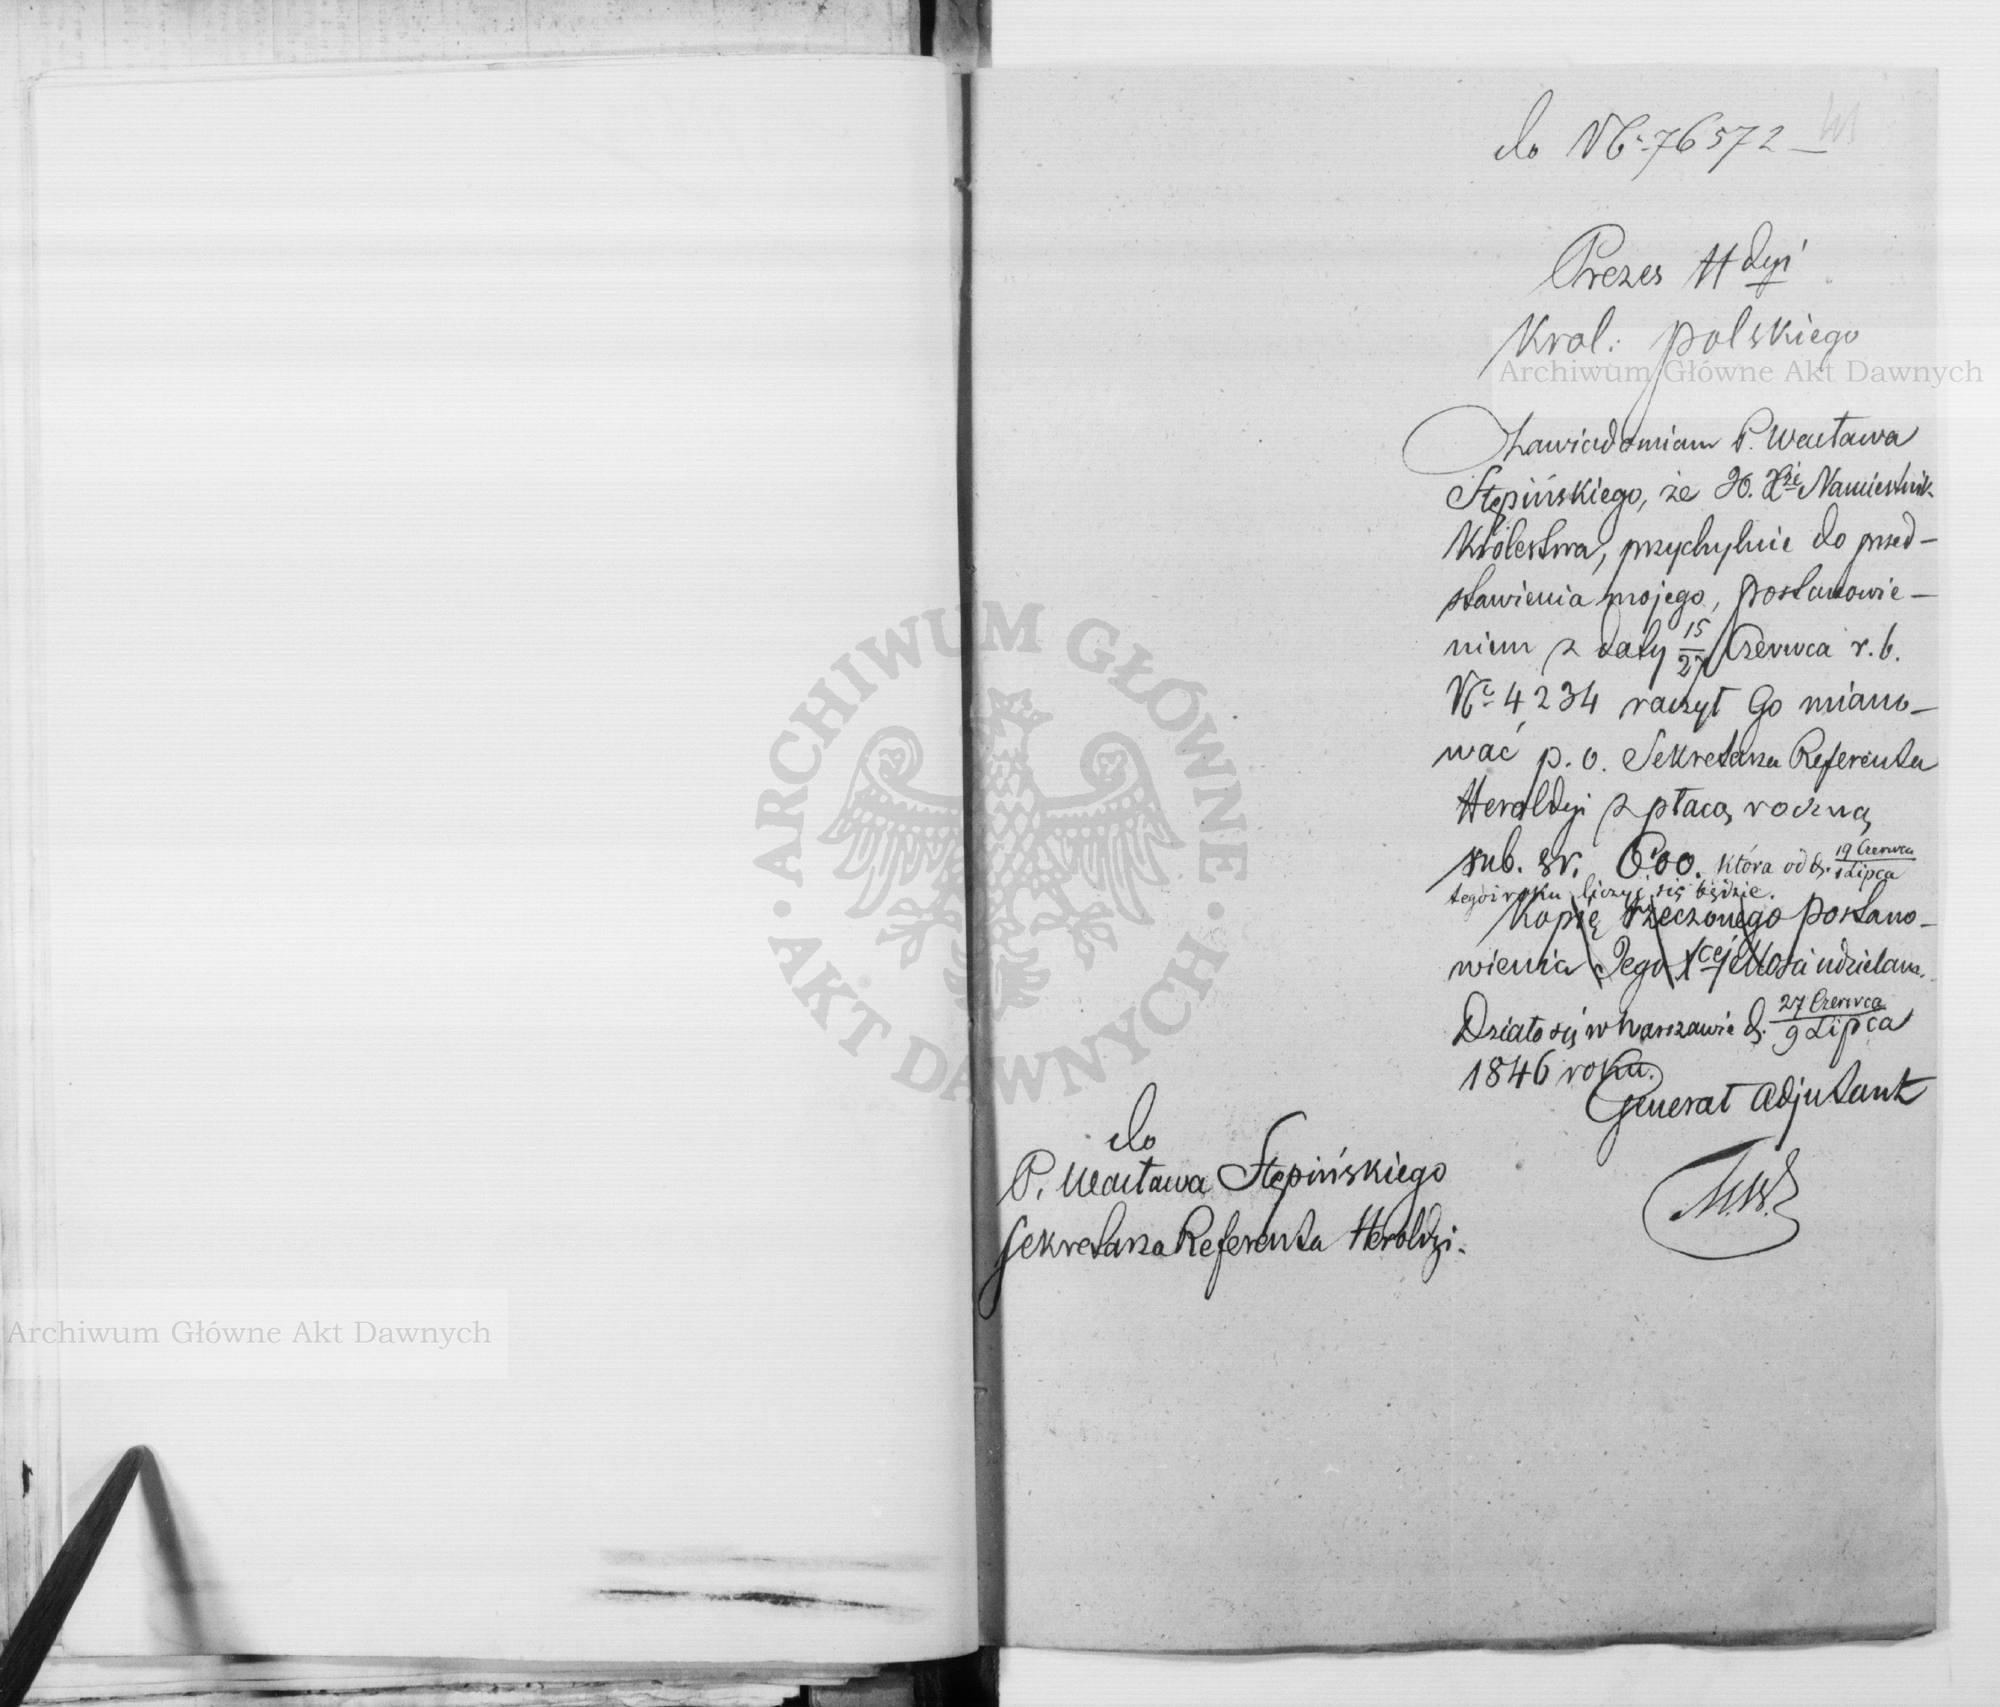 do Nº 76572
Prezes Hdyi
Król: Polskiego
Archiwum Główne Akt Dawnych
Zawiadamiam P. Wacława
Stępińskiego, że JO. Xże Namiestnik
Królestwa, przychylnie do przed-
stawienia mojego, postanowie-
niem z daty 15/27 Czerwca r. b.
Nº 4234 raczył Go miano-
wać p. o. Sekretarza Referenta
Heroldyi z płacą roczną
rub. sr. 600. która od d. 19 Czerwca/1 Lipca
tegoż roku liczyć się będzie.
Kopię rzeczonego postano-
wienia Jego Xcej Mości udzielam.
Działo się w Warszawie d. 27 Czerwca/9 Lipca
1846 roku.
Generał Adjutant
do
P. Wacława Stępińskiego
Sekretarza Referenta Heroldyi.
ARCHIWUM GŁÓWNE
AKT DAWNYCH
Archiwum Główne Akt Dawnych